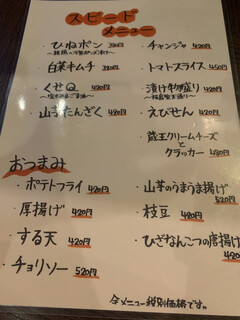 スピード
メニュー
・ひねポン 390円
・白菜キムチ 390円
・くせQ 420円
・山芋たんざく 420円
・チャンジャ 420円
・トマトスライス 450円
・漬け物盛り 420円
・えびせん 420円
・蔵王クリームチーズ
と
クラッカー 480円
おつまみ
・ポテトフライ 420円
・厚揚げ 420円
・する天 420円
・チョリソー 520円
・山芋のうまうま揚げ 520円
・枝豆 420円
・ひざなんこつの唐揚げ
420円
全メニュー税別価格です。